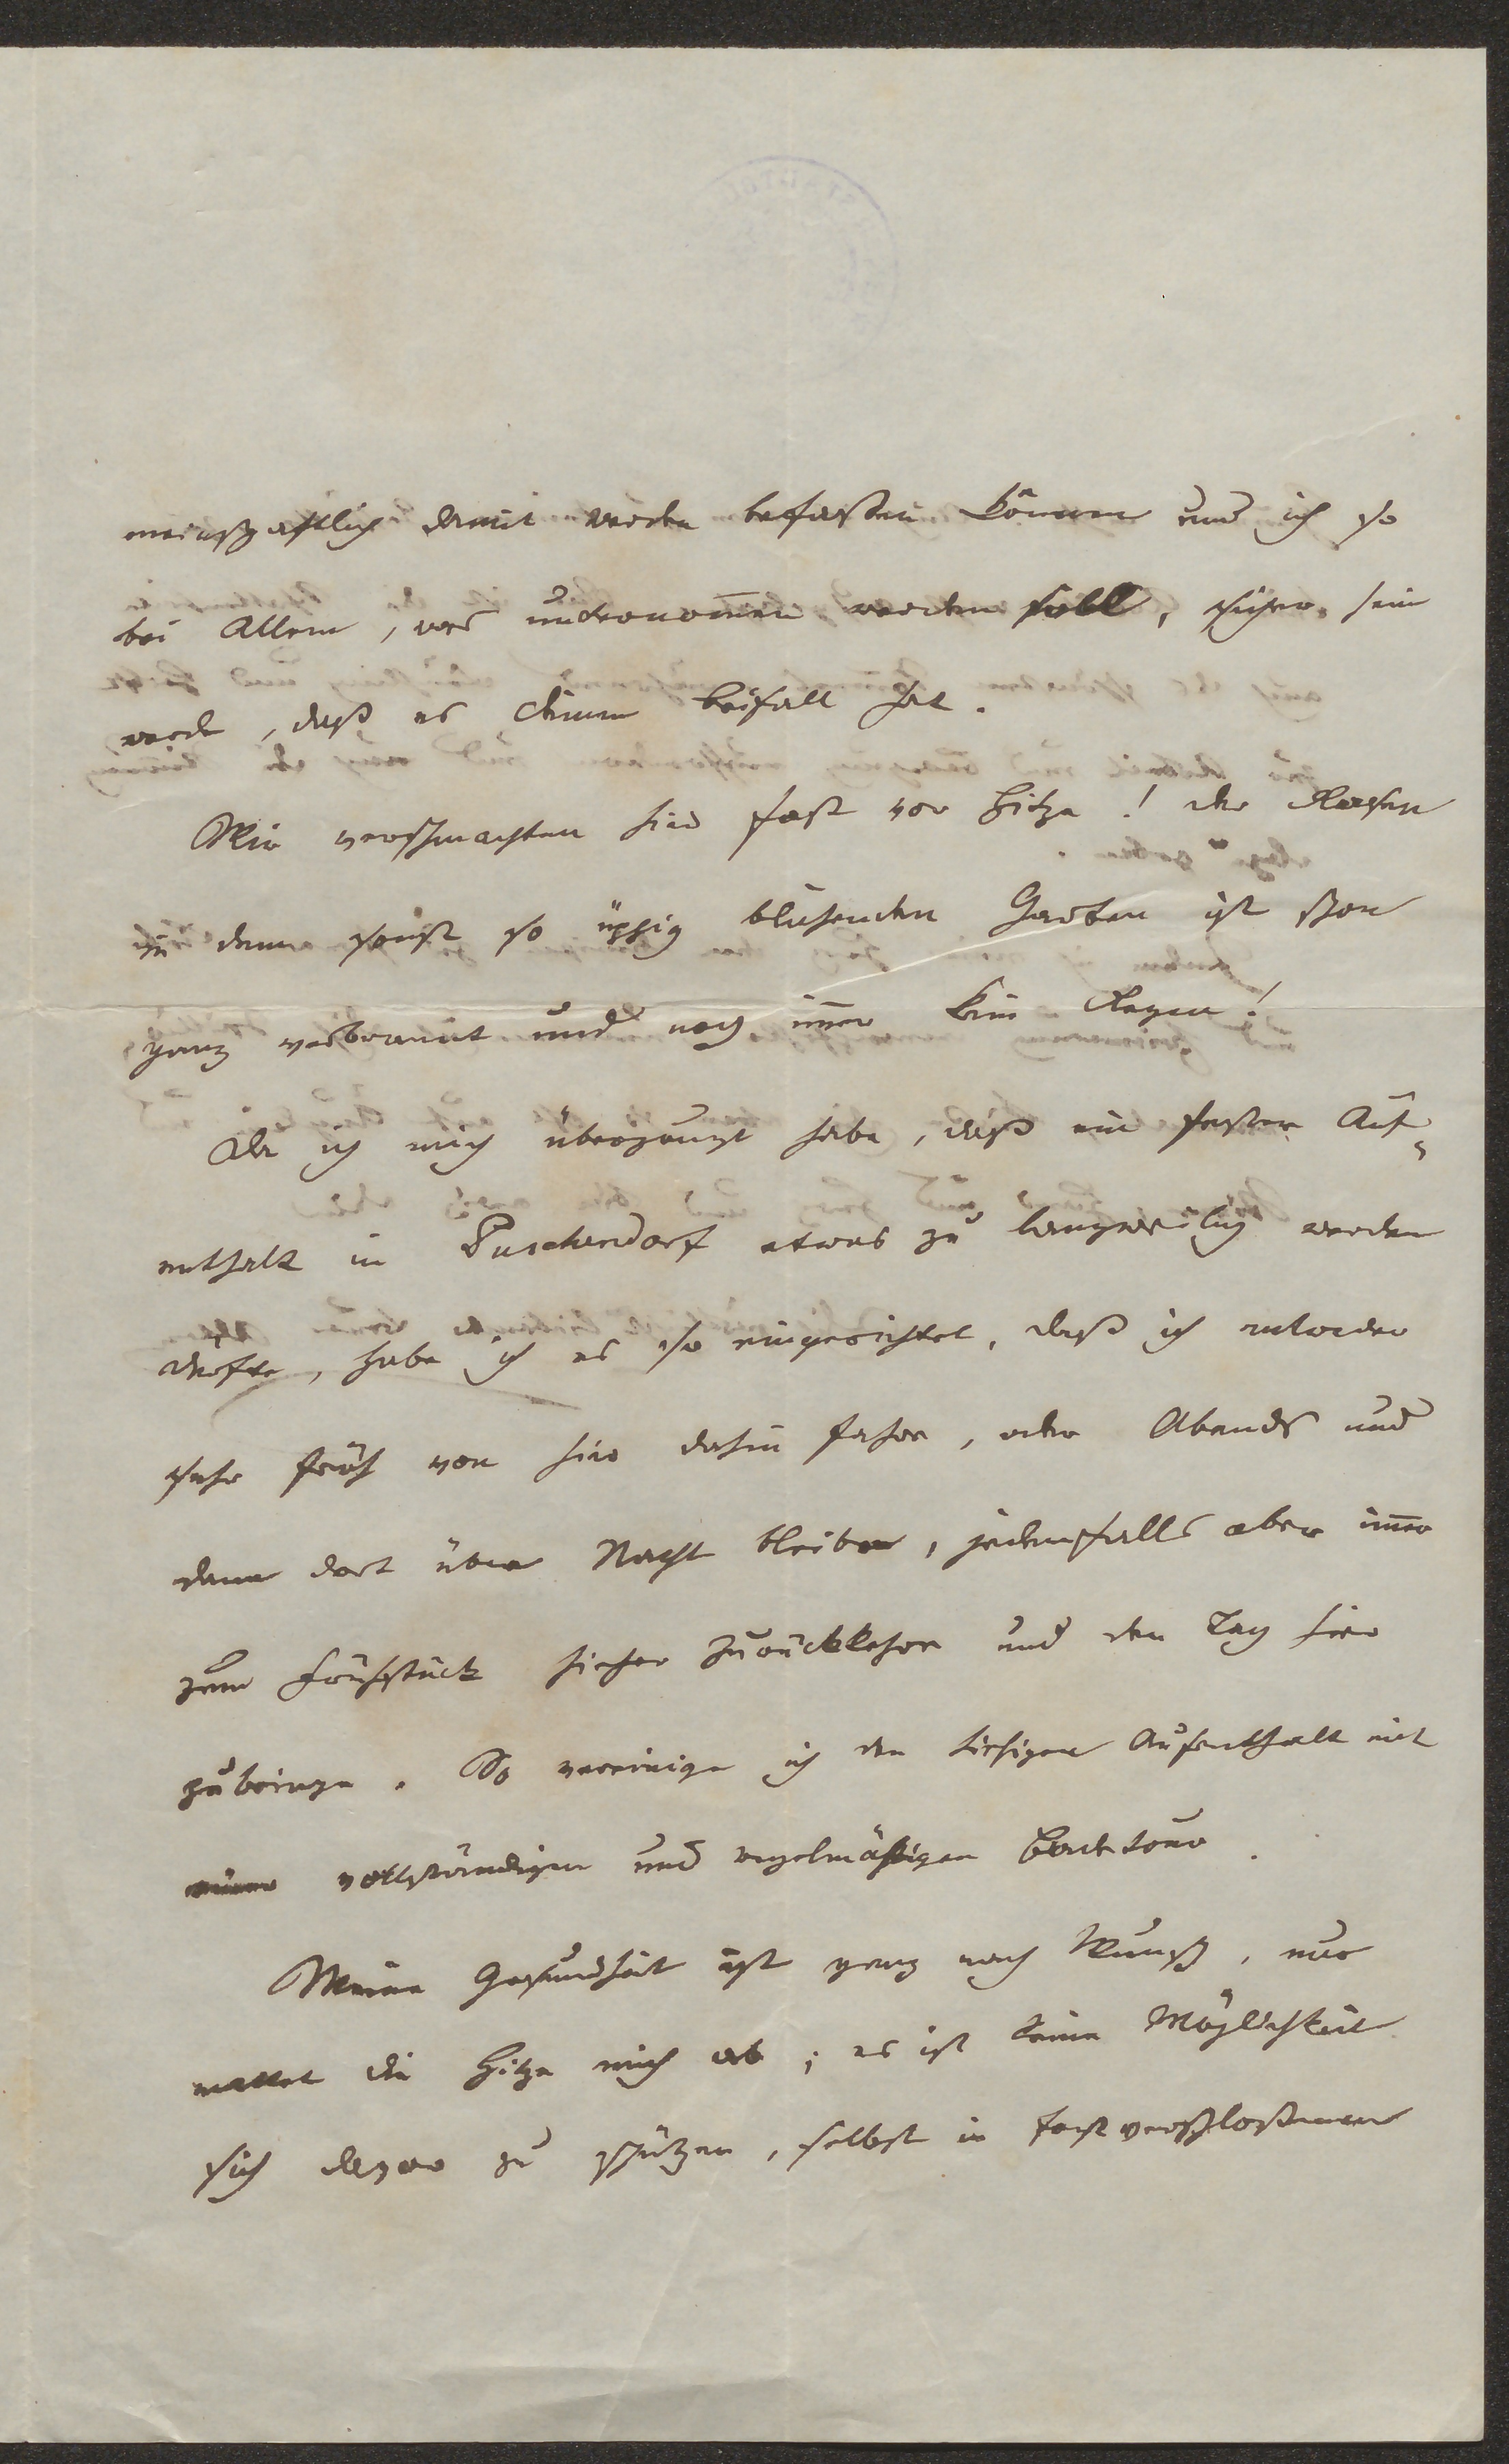 meinschaftlich damit werden befassen können und ich so
bei Allem, was unternom̅en werden soll, sicher sein
werde, daß es Deinen Beifall hat.
Wir verschmachten hier fast vor Hitze! der Rasen
in dem sonst so üppig blühenden Garten ist schon
ganz verbrannt und noch im̅er kein Regen!
Da ich mich überzeugt habe, daß ein fester Auf-
enthalt in Puschendorf etwas zu langweilig werden
dürfte, habe ich es so eingerichtet, daß ich entweder
sehr früh von hier dahin fahre, oder Abends und
dann dort über Nacht bleibe, jedenfalls aber im̅er
zum Frühstück hieher zurückkehre und den Tag hier
zubringe. So vereinige ich den hiesigen Aufenthalt mit
einer vollständigen und regelmäßigen Badekur.
Meine Gesundheit ist ganz nach Wunsch, nur
mattet die Hitze mich ab; es ist keine Möglichkeit
sich davor zu schützen, selbst in festverschloßenen